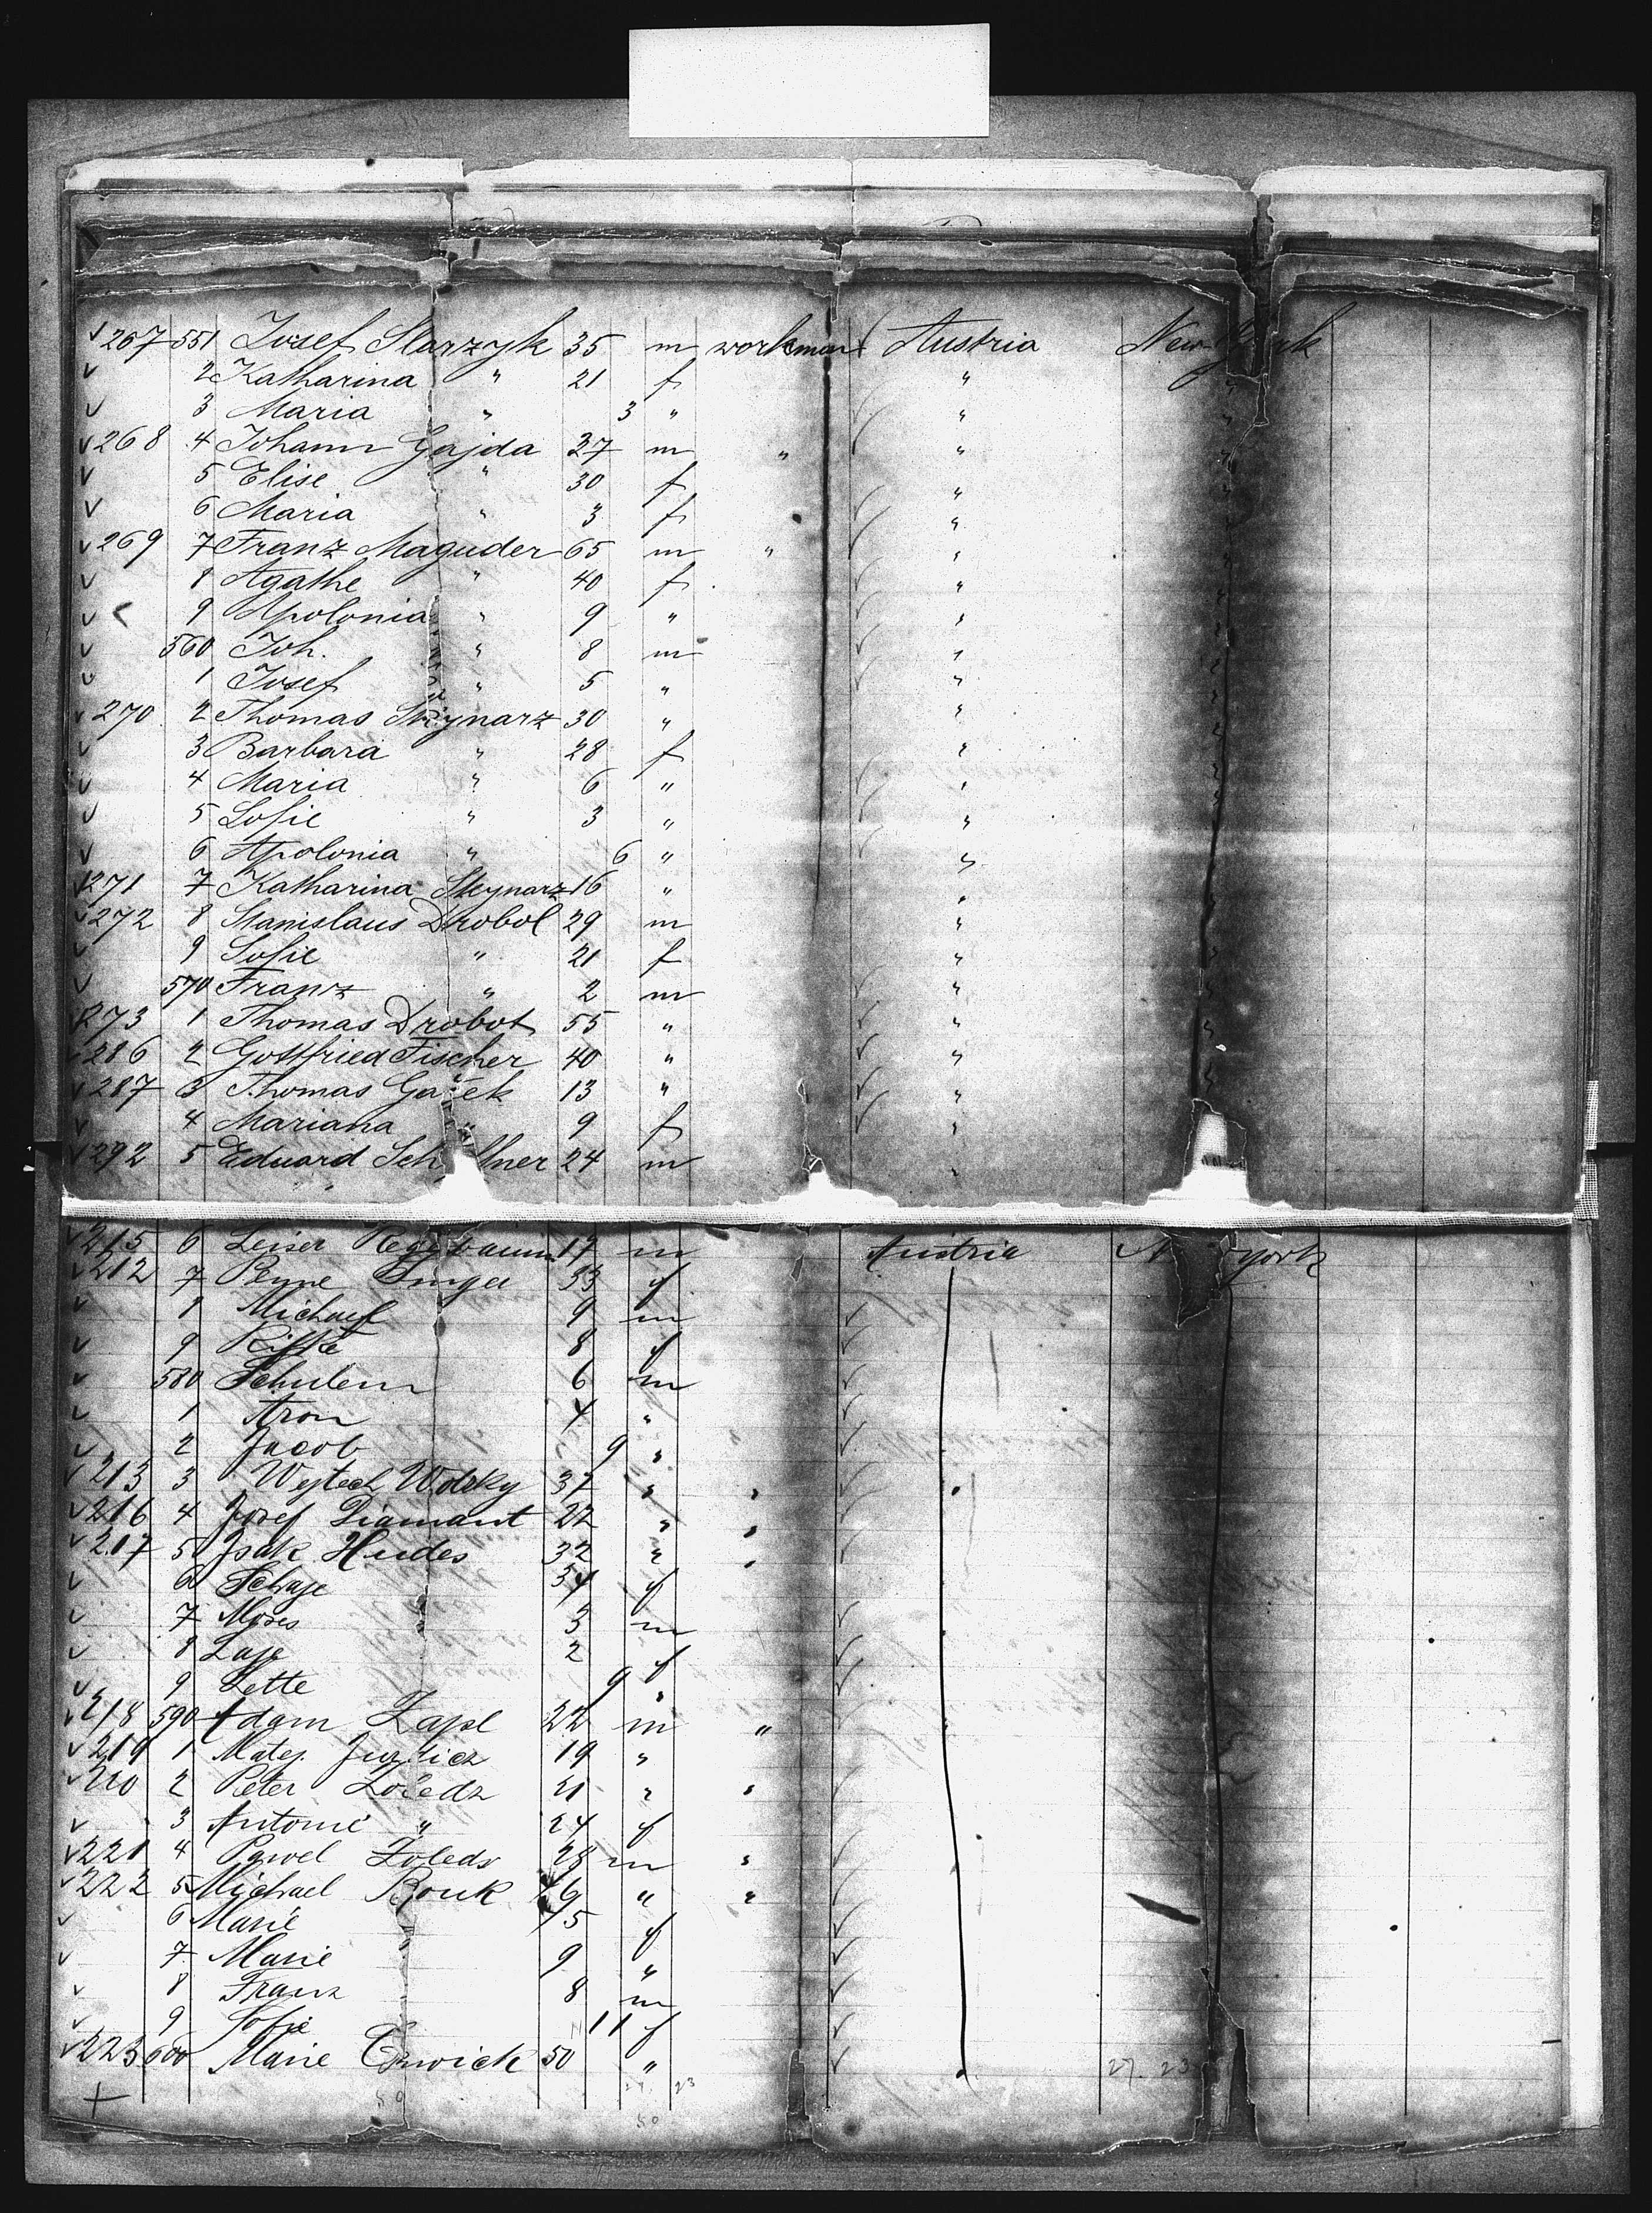 267 551 Josef Slarzyk 35 m workman Austria New-York
2 Katharina " 21 f " "
3 Maria " 3 " " "
268 4 Johann Gajda 37 m " " "
5 Elise " 30 f "
6 Maria " 3 f "
269 7 Franz Maguder 65 m " " "
8 Agathe " 40 f " "
9 Apolonia " 9 " " "
560 Joh. " 8 m " "
1 Josef " 5 " " "
270 2 Thomas 30 " "
3 Barbara " 28 f " "
4 Maria " 6 " " "
5 Sofie " 3 " " "
6 Apolonia " 6 " "
271 7 Katharina 16 " " "
272 8 Stanislaus Drobot 29 m " "
9 Sofie " 21 f " "
570 Franz " 2 m " "
273 1 Thomas Drobot 55 " " "
286 2 Gottfried Fischer 40 " "
287 3 Thomas 13 " " "
4 Mariana " 9 f "
292 5 Eduard 24 m "
215 6 Leiser 17 m Austria York
212 7 33 f
8 Michael 9 m
9 8 f
580 Schulem 6 m
1 Aron 4 "
2 Jacob 9 "
213 3 Wojtech Wolsky 37 " "
216 4 Josef Diamant 22 " "
217 5 Isak Hudes 32 " "
6 34 f
7 Moses " 3 m
8 2 f
9 Lette 9 "
218 590 Adam 22 m "
219 1 Matej 19 "
220 2 Peter 21 " "
3 Antonie " 24 f
221 4 Pawel 28 m "
222 5 Michael " "
6 Marie f
7 Marie 9 "
8 Franz 8 m
9 Sofie 11 f
223 600 Marie 50 "
27. 23
50